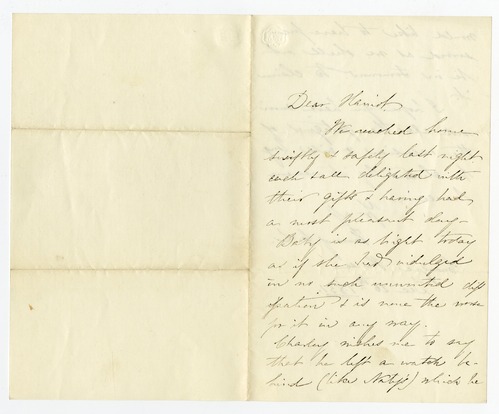 Dear Harriot,
We reached home
swiftly & safely last night
each & all delighted with
their gifts & having had
a most pleasant day -
Baby is as bright today
as if she had indulged
in no such unwonted dis
sipation & is none the worse
for it in any way.
Charley wishes me to say
that he left a watch be-
hind (like Natty's) which he